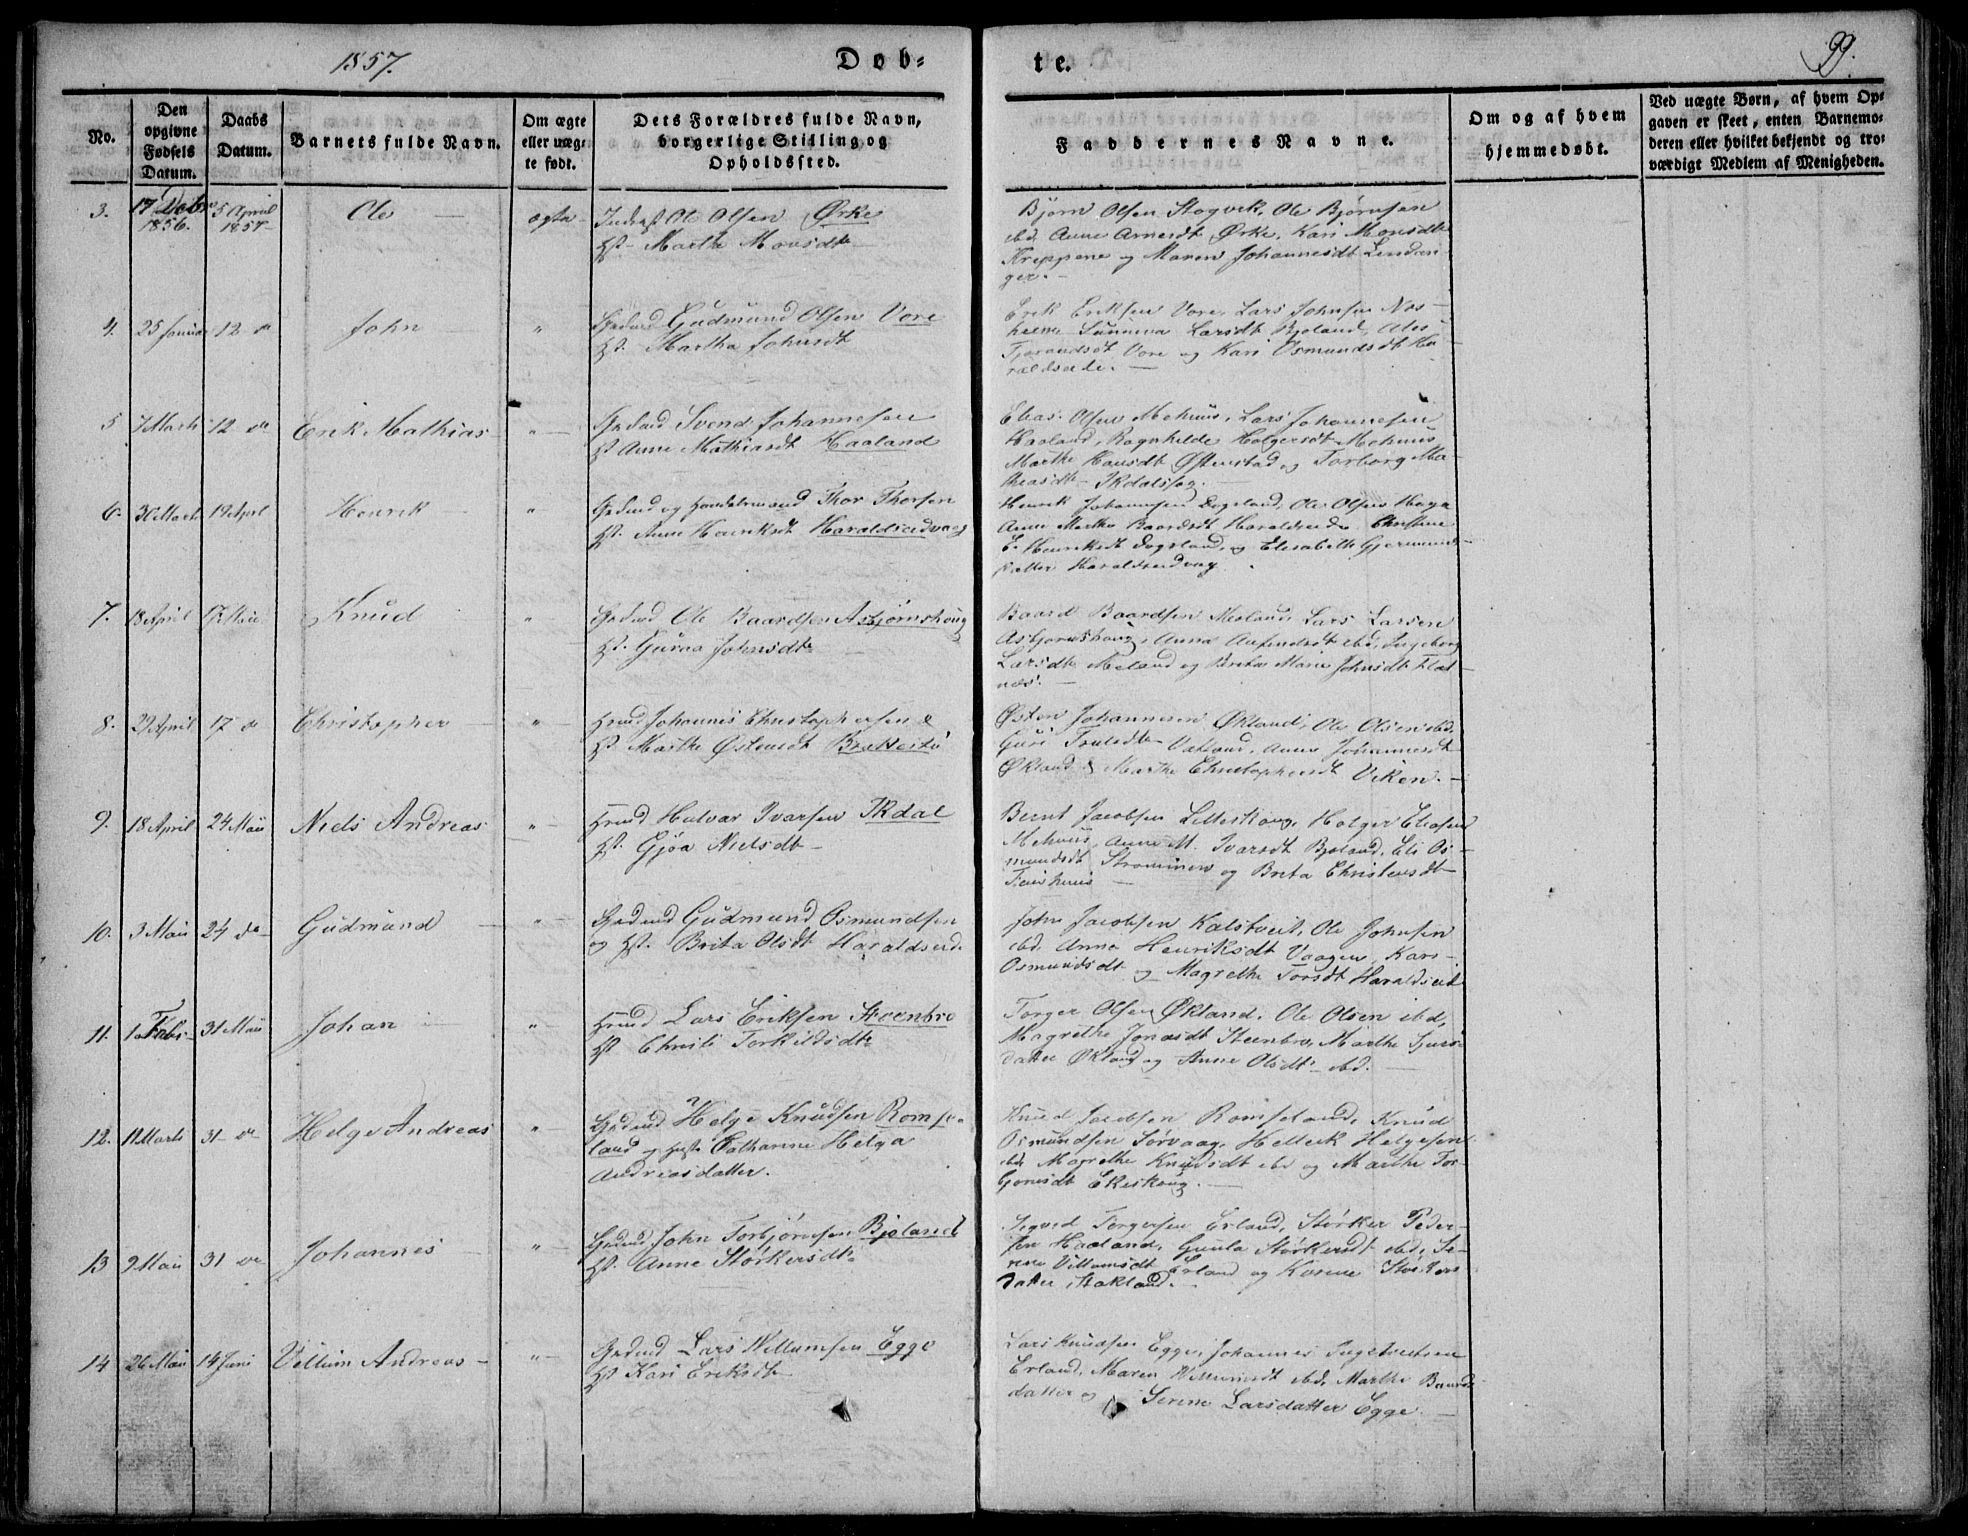 1857.
Døb-
te.
99.
No.
Den
opgivne
Fødsels
Datum.
Daabs
Datum.
Barnets fulde Navn.
Om ægte
eller uæg-
te født.
Dets Forældres fulde Navn,
borgerlige Stilling og
Opholdssted.
Faddernes Navne.
Om og af hvem
hjemmedøbt.
Ved uægte Børn, af hvem Op-
gaven er skeet, enten Barnemo-
deren eller hvilket bekjendt og tro-
værdigt Medlem af Menigheden.
3.
17 Debr
1856.
5 April
1857
Ole
ægte
Ole Olsen Ørke
Marthe Monsdtr
Bjørn Olsen Stogvik, Ole Bjørnsen
ibd, Anne Arnesdt Ørke, Kari Monsdtr
Kreppene og Maren Johannesdt Lindan-
ger.
4.
25 Januar
12 do
John
"
Gudmund Olsen Vore
Martha Johnsdt
Erik Eriksen Vore, Lars Johnsen Nes-
heim Sunneva Larsdt Bjoland, Ales
Tjorandsdt Vore og Kari Osmundsdt Ha-
raldseide.
5
7 Marts
12 do
Erik Mathias
"
Svend Johannesen
Anne Mathiasdt Haaland
Elias Olsen Mehuus, Lars Johannesen
Haaland, Ragnhilde Holgersdt Mehuus
Marthe Hansdt Østenstad og Torborg Ma-
thiasdt
6.
30 Marts
19 April
Henrik
"
Gbrmd og Handelsmand Thor Thorsen
Anne Henriksdt Haraldseidvaag
Henrik Johannesen Dogsland, Ole Olsen Hauge
Anne Marthe Baardsdt Haraldseide Christine
E. Henriksdt Dogsland, og Elisabeth Gjermunds-
datter Haraldseidvag
7.
18 April
17 Mai
Knud
"
Ole Baardsen Asbjørnshoug
Guroa Johnsdtr
Baard Baardsen Meland, Lars Larsen
Asbjørnshoug, Anna Anfindsdt ibd, Ingeborg
Larsdtr Meland og Brita Marie Johnsdt Flat-
næs.
8.
29 April
17 do
Christopher
"
Johannis Christophersen
Marthe Østensdt Brattestø
Østen Johannesen Økland, Ole Olsen ibd,
Guri Trulsdtr Vatland, Anna Johannesdt
Økland & Marthe Christophersdt Viken.
9.
18 April
24 Mai
Niels Andreas
"
Halvar Ivarsen Ikdal
Gjøa Nielsdt
Bernt Jacobsen Litleskoug, Holger Eliasen
Mehuus, Anne M. Ivarsdt Bjoland, Eli Os-
mundsdt Strømmen og Brita Christensdt
10.
3 Mai
24 do
Gudmund
"
Gudmund Osmundsen
og Brita Olsdt Haraldseid.
John Jacobsen Kalstveit, Ole Johnsen
ibd, Anne Henriksdt Vaagen, Kari
Osmundsdt og Magrethe Torsdt Haraldseid
11.
1 Febr
31 Mai
Johan
"
Lars Eriksen Steenbro
Christi Torkildsdtr
Torger Olsen Økland, Ole Olsen ibd,
Magrethe Jonasdt Steenbro, Marthe Sjurs-
datter Økland og Anne Olsdt ibd.
12.
11 Marts
31 do
Helge Andreas
"
Helge Knudsen Romse-
land og Cathanne Helga
Andreasdatter.
Knud Jacobsen Romseland, Knud
Osmundsen Sørvaag, Helleik Helgesen
ibd, Magrethe Knudsdt ibd og Marthe Tor-
Ekeskoug.
13
9 Mai
31 do
Johannes
"
John Torbjørnsen Bjoland
Anne Størkersdtr
Sigvd Torgersen Erland, Størker Peder-
sen Haaland, Gunla Størkersdt ibd, Se-
rine Villumsdt Erland og Størkers
datter Stakland.
14
26 Mai
14 Juni
Villum Andreas
"
Lars Willumsen Egge
Kari Eriksdt
Lars Knudsen Egge, Johannes Ingebretsen
Erland, Maren Willumsdt ibd, Marthe Baards
datter og Serine Larsdatter Egge.